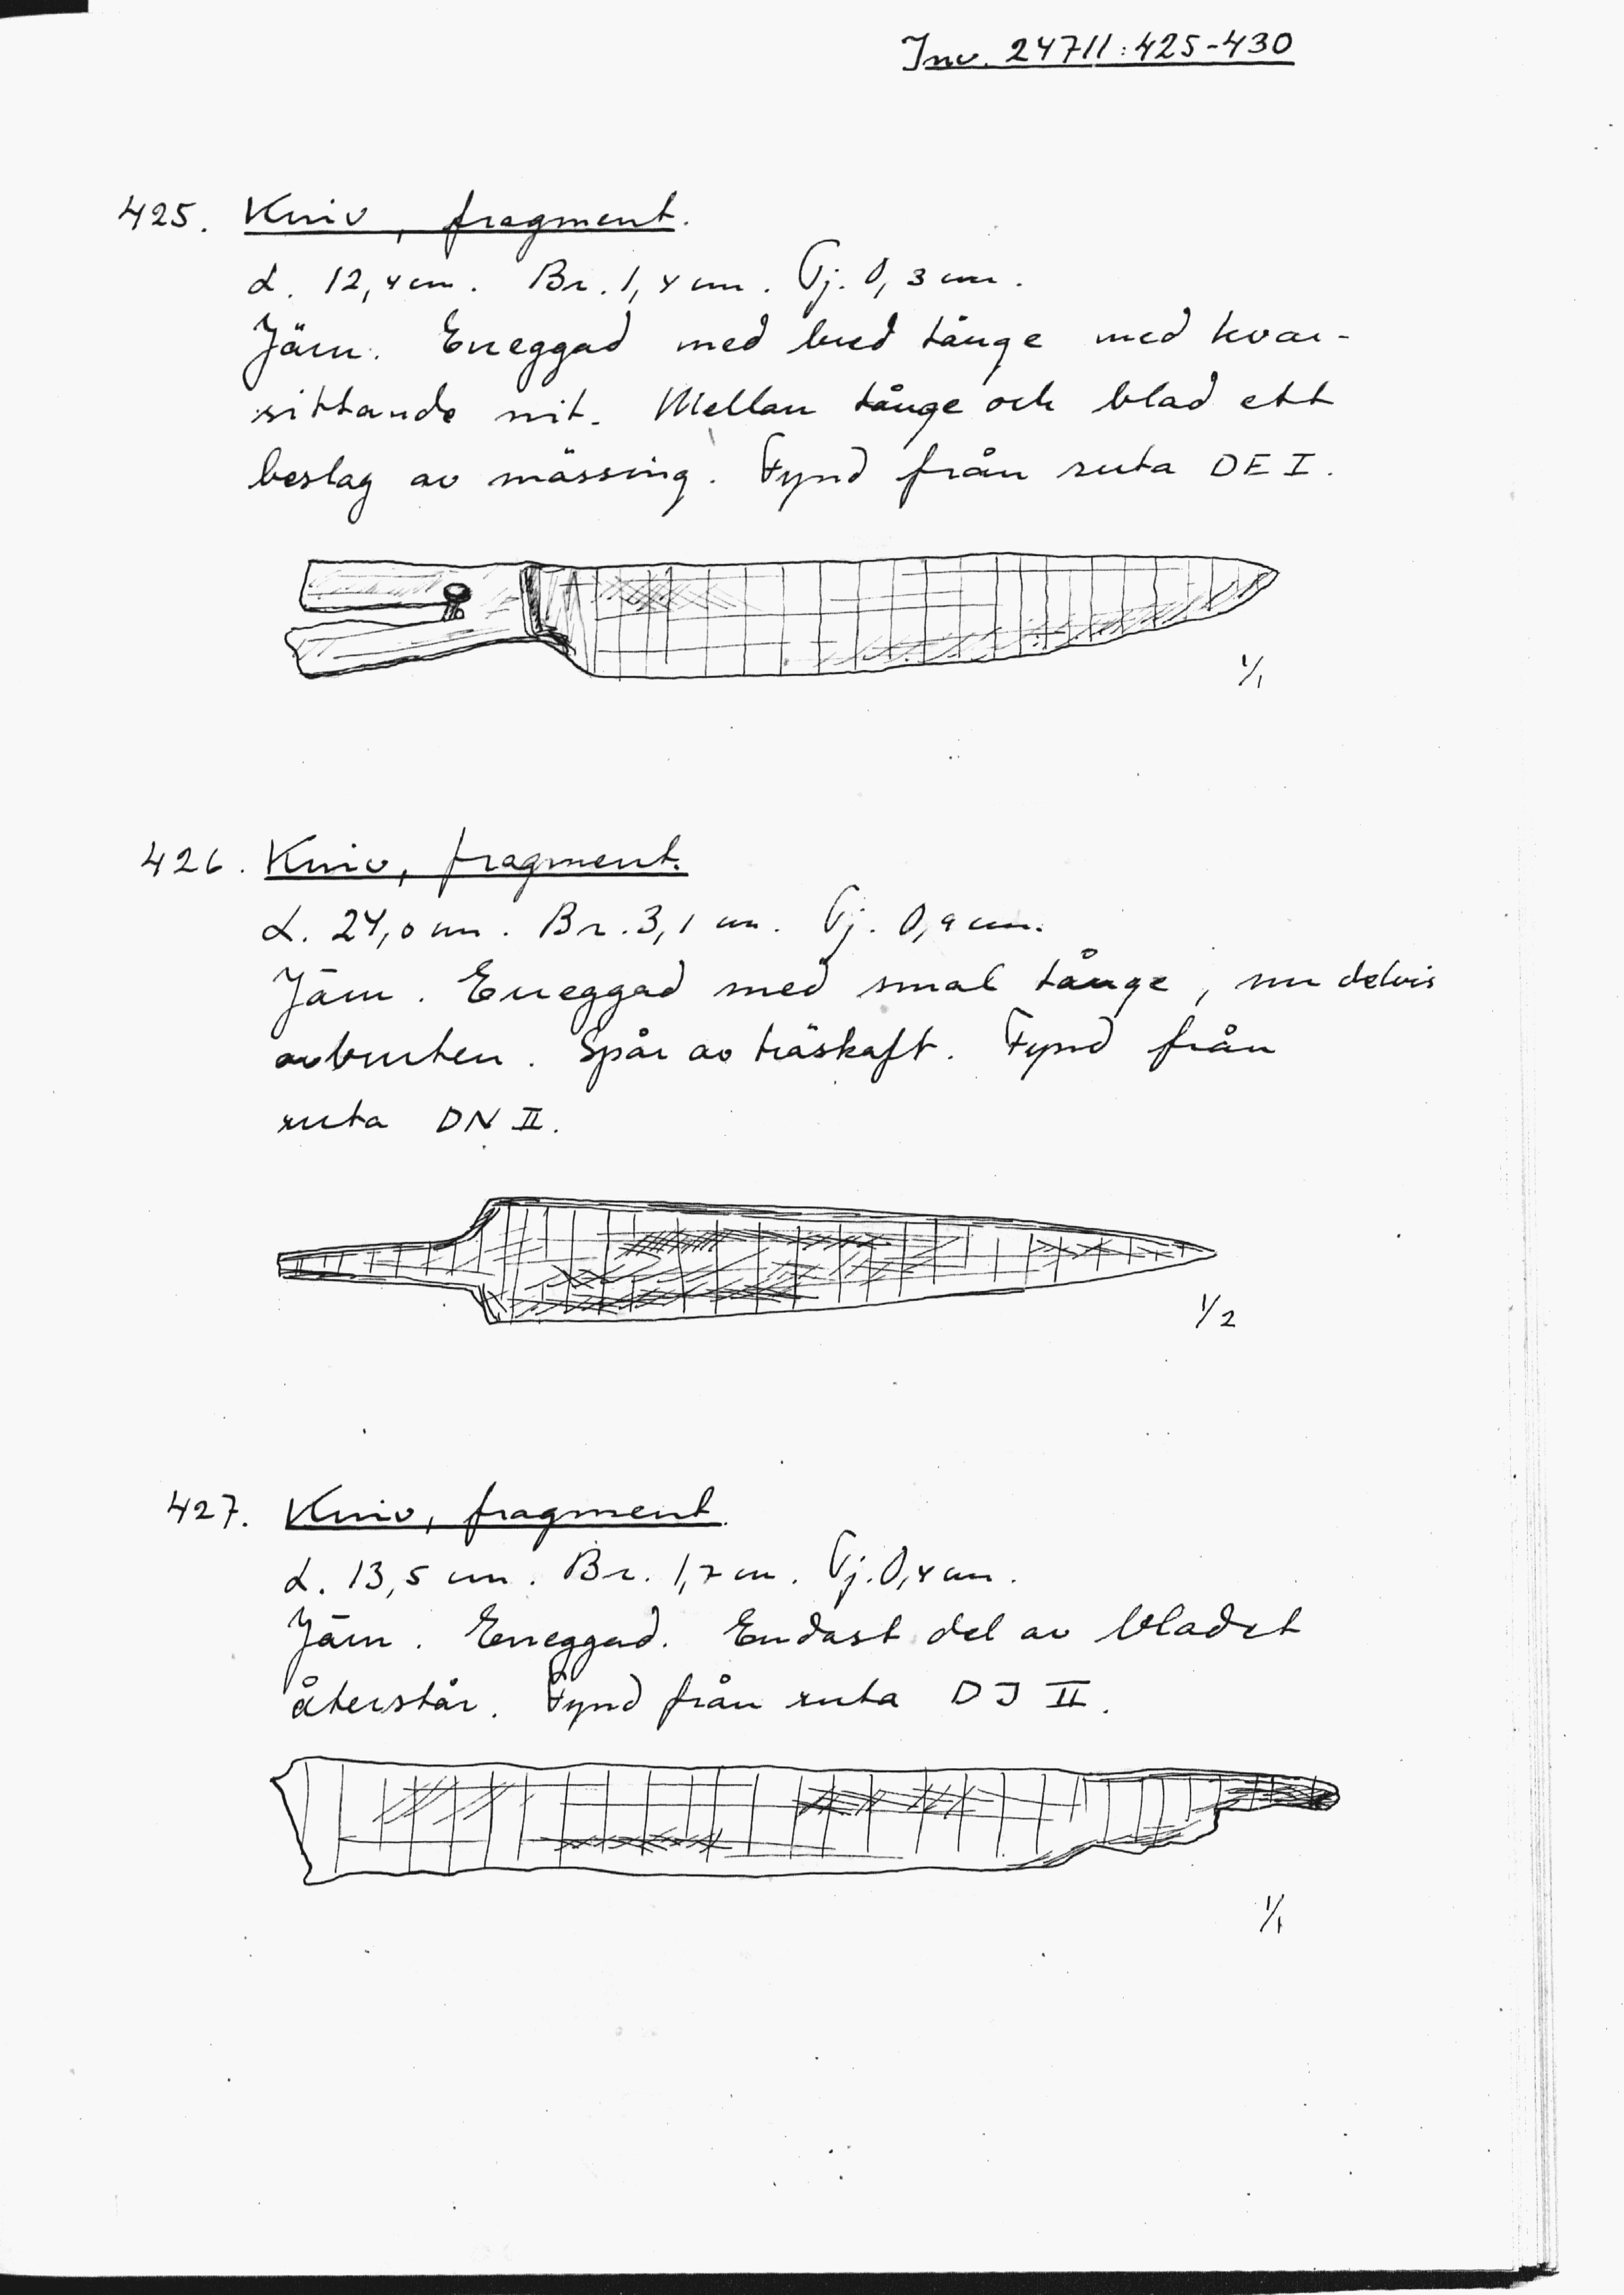 Inv. 24711:425-430
425. Kniv, fragment.
L. 12,4 cm. Br. 1,4 cm. Tj. 0,3 cm.
Järn. Eneggad med bred tånge med kvar-
sittande nit. Mellan tånge och blad ett
beslag av mässing. Fynd från ruta DE I.
1/1
426. Kniv, fragment.
L. 24,0 cm. Br. 3,1 cm. Tj. 0,9 cm.
Järn. Eneggad med smal tånge, nu delvis
avbruten. Spår av träskaft. Fynd från
ruta DN II.
1/2
427. Kniv, fragment.
L. 13,5 cm. Br. 1,7 cm. Tj. 0,4 cm.
Järn. Eneggad. Endast del av bladet
återstår. Fynd från ruta DJ II.
1/1